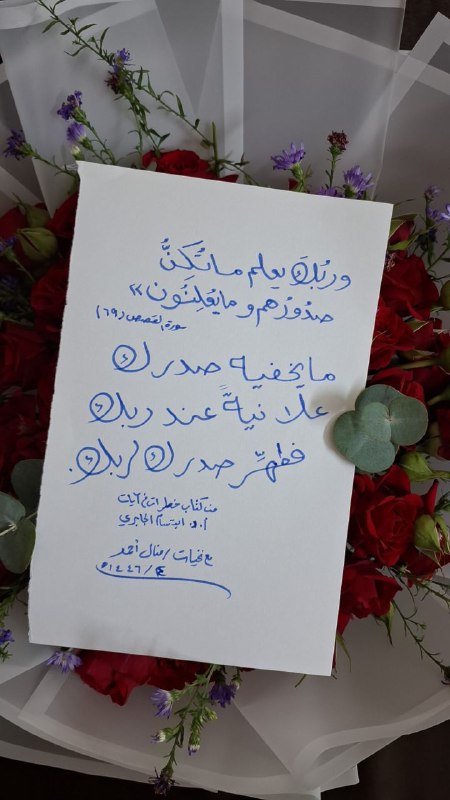 وربُكَ يعلم ما تُكَنُّ
صدُورُهم وما يُعلِنُون»
سورة القصص (٦٩)
ما يخفيه صدرك
علانيةً عند ربك
فطهِّر صدرك لربك.
من كتاب خطرات في آيات
أ.د ابتسام الجابري
مع تحيات / منال أحمد
٤ / ١٤٤٦هـ